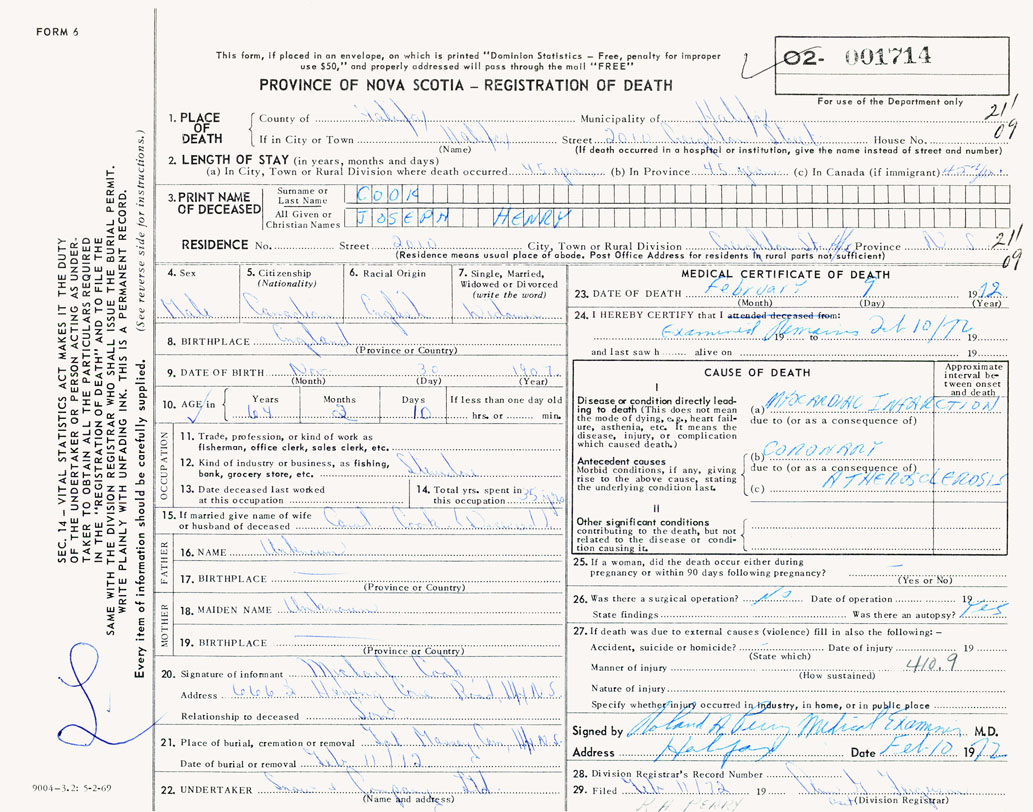 FORM 6
This form, if placed in an envelope, on which is printed "Dominion Statistics – Free, penalty for improper
use $50," and properly addressed will pass through the mail "FREE"
02- 001714
For use of the Department only
PROVINCE OF NOVA SCOTIA – REGISTRATION OF DEATH
1. PLACE OF DEATH
County of Halifax Municipality of Halifax
21/09
If in City or Town Halifax Street 2010 Creighton Street House No.
(Name) (If death occurred in a hospital or institution, give the name instead of street and number)
2. LENGTH OF STAY (in years, months and days)
(a) In City, Town or Rural Division where death occurred 45 years (b) In Province 45 years (c) In Canada (if immigrant) 45 yrs.
3. PRINT NAME OF DECEASED
Surname or Last Name COOK
All Given or Christian Names JOSEPH HENRY
RESIDENCE No. Street 2010 Creighton St. Hfx City, Town or Rural Division Province N.S.
21/09
(Residence means usual place of abode. Post Office Address for residents in rural parts not sufficient)
4. Sex Male
5. Citizenship (Nationality) Canadian
6. Racial Origin English
7. Single, Married, Widowed or Divorced (write the word) Widower
8. BIRTHPLACE England
(Province or Country)
9. DATE OF BIRTH Nov. 30 1907
(Month) (Day) (Year)
10. AGE in Years 64 Months 2 Days 10 If less than one day old hrs. or min.
OCCUPATION
11. Trade, profession, or kind of work as fisherman, office clerk, sales clerk, etc.
12. Kind of industry or business, as fishing, bank, grocery store, etc.
13. Date deceased last worked at this occupation
14. Total yrs. spent in this occupation 35 yrs
15. If married give name of wife or husband of deceased Cook
FATHER
16. NAME Unknown
17. BIRTHPLACE
(Province or Country)
MOTHER
18. MAIDEN NAME Unknown
19. BIRTHPLACE
(Province or Country)
20. Signature of informant Michael Cook
Address Herring Cove Road, Hfx N.S.
Relationship to deceased Son
21. Place of burial, cremation or removal Hfx N.S.
Date of burial or removal Feb 11/72
22. UNDERTAKER Snow & Company Ltd
(Name and address)
MEDICAL CERTIFICATE OF DEATH
23. DATE OF DEATH February 9 1972
(Month) (Day) (Year)
24. I HEREBY CERTIFY that I attended deceased from:
Examined Remains Feb 10/72
19 to 19
and last saw h alive on 19
CAUSE OF DEATH
Approximate interval between onset and death
I
Disease or condition directly leading to death (This does not mean the mode of dying, e.g., heart failure, asthenia, etc. It means the disease, injury, or complication which caused death.)
(a) MYOCARDIAL INFARCTION
due to (or as a consequence of)
Antecedent causes
Morbid conditions, if any, giving rise to the above cause, stating the underlying condition last.
(b) CORONARY
due to (or as a consequence of)
(c) ATHEROSCLEROSIS
II
Other significant conditions contributing to the death, but not related to the disease or condition causing it.
25. If a woman, did the death occur either during pregnancy or within 90 days following pregnancy?
(Yes or No)
26. Was there a surgical operation? No Date of operation 19
State findings Was there an autopsy? Yes
27. If death was due to external causes (violence) fill in also the following: –
Accident, suicide or homicide? Date of injury 19
(State which)
Manner of injury 410.9
(How sustained)
Nature of injury
Specify whether injury occurred in industry, in home, or in public place
Signed by Roland A. Perry Medical Examiner M.D.
Address Halifax Date Feb-10 1972
28. Division Registrar's Record Number
29. Filed Feb 11/72 19
(Division Registrar)
R A PERRY
SEC. 14 – VITAL STATISTICS ACT MAKES IT THE DUTY
OF THE UNDERTAKER OR PERSON ACTING AS UNDER-
TAKER TO OBTAIN ALL THE PARTICULARS REQUIRED
IN THE "REGISTRATION OF DEATH" AND TO FILE THE
SAME WITH THE DIVISION REGISTRAR WHO SHALL ISSUE THE BURIAL PERMIT.
WRITE PLAINLY WITH UNFADING INK. THIS IS A PERMANENT RECORD.
Every item of information should be carefully supplied. (See reverse side for instructions.)
9004-3.2: 5-2-69